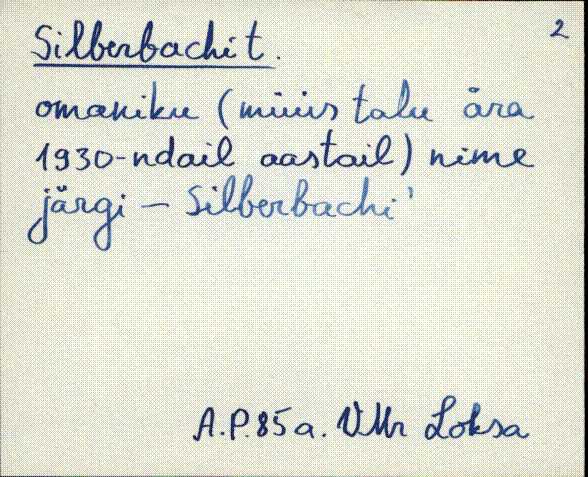 Silberbachi t. 2
omaniku (müüs talu ära
1930-ndail aastail) nime
järgi – Silberbachi'
A.P.85a. VMr Loksa